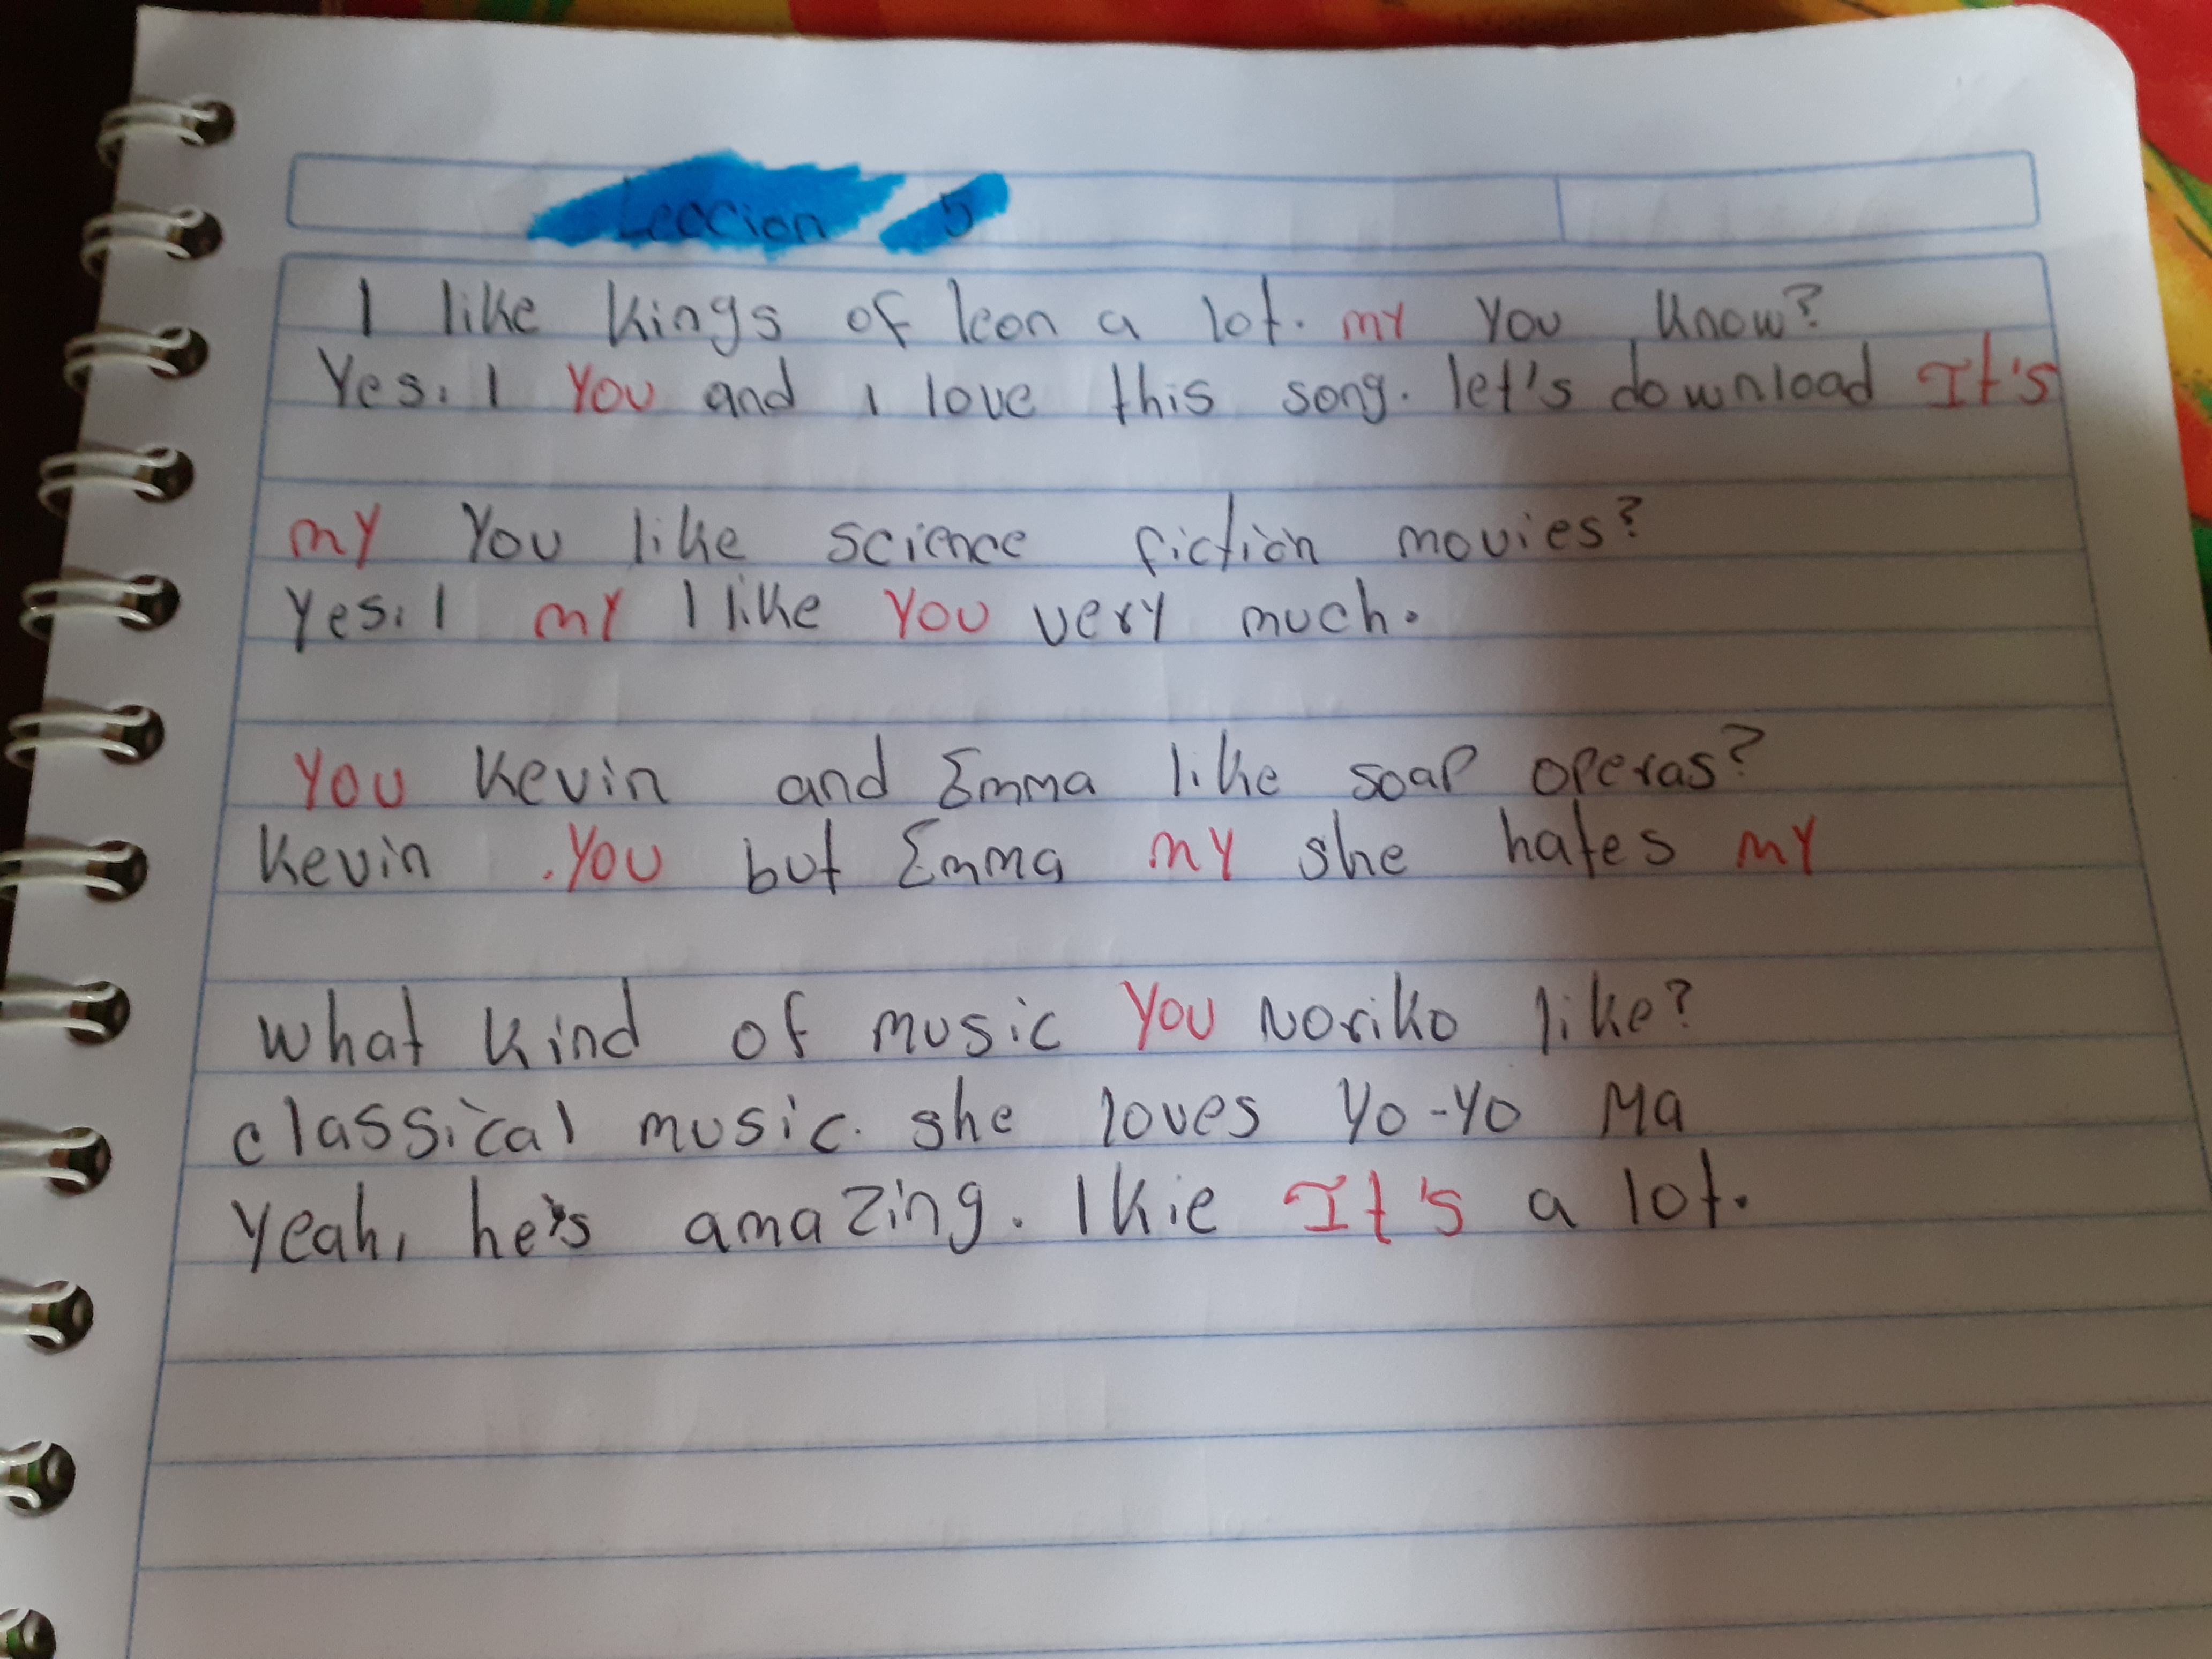 Leccion 5
I like kings of leon a lot. my you know?
Yes. I You and I love this song. let's download It's
my You like science fiction movies?
Yes. I my I like You very much.
You Kevin and Emma like soap operas?
Kevin .You but Emma my she hates my
what kind of music You Noriko like?
classical music. she loves Yo-Yo Ma
Yeah, he's amazing. I kie It's a lot.